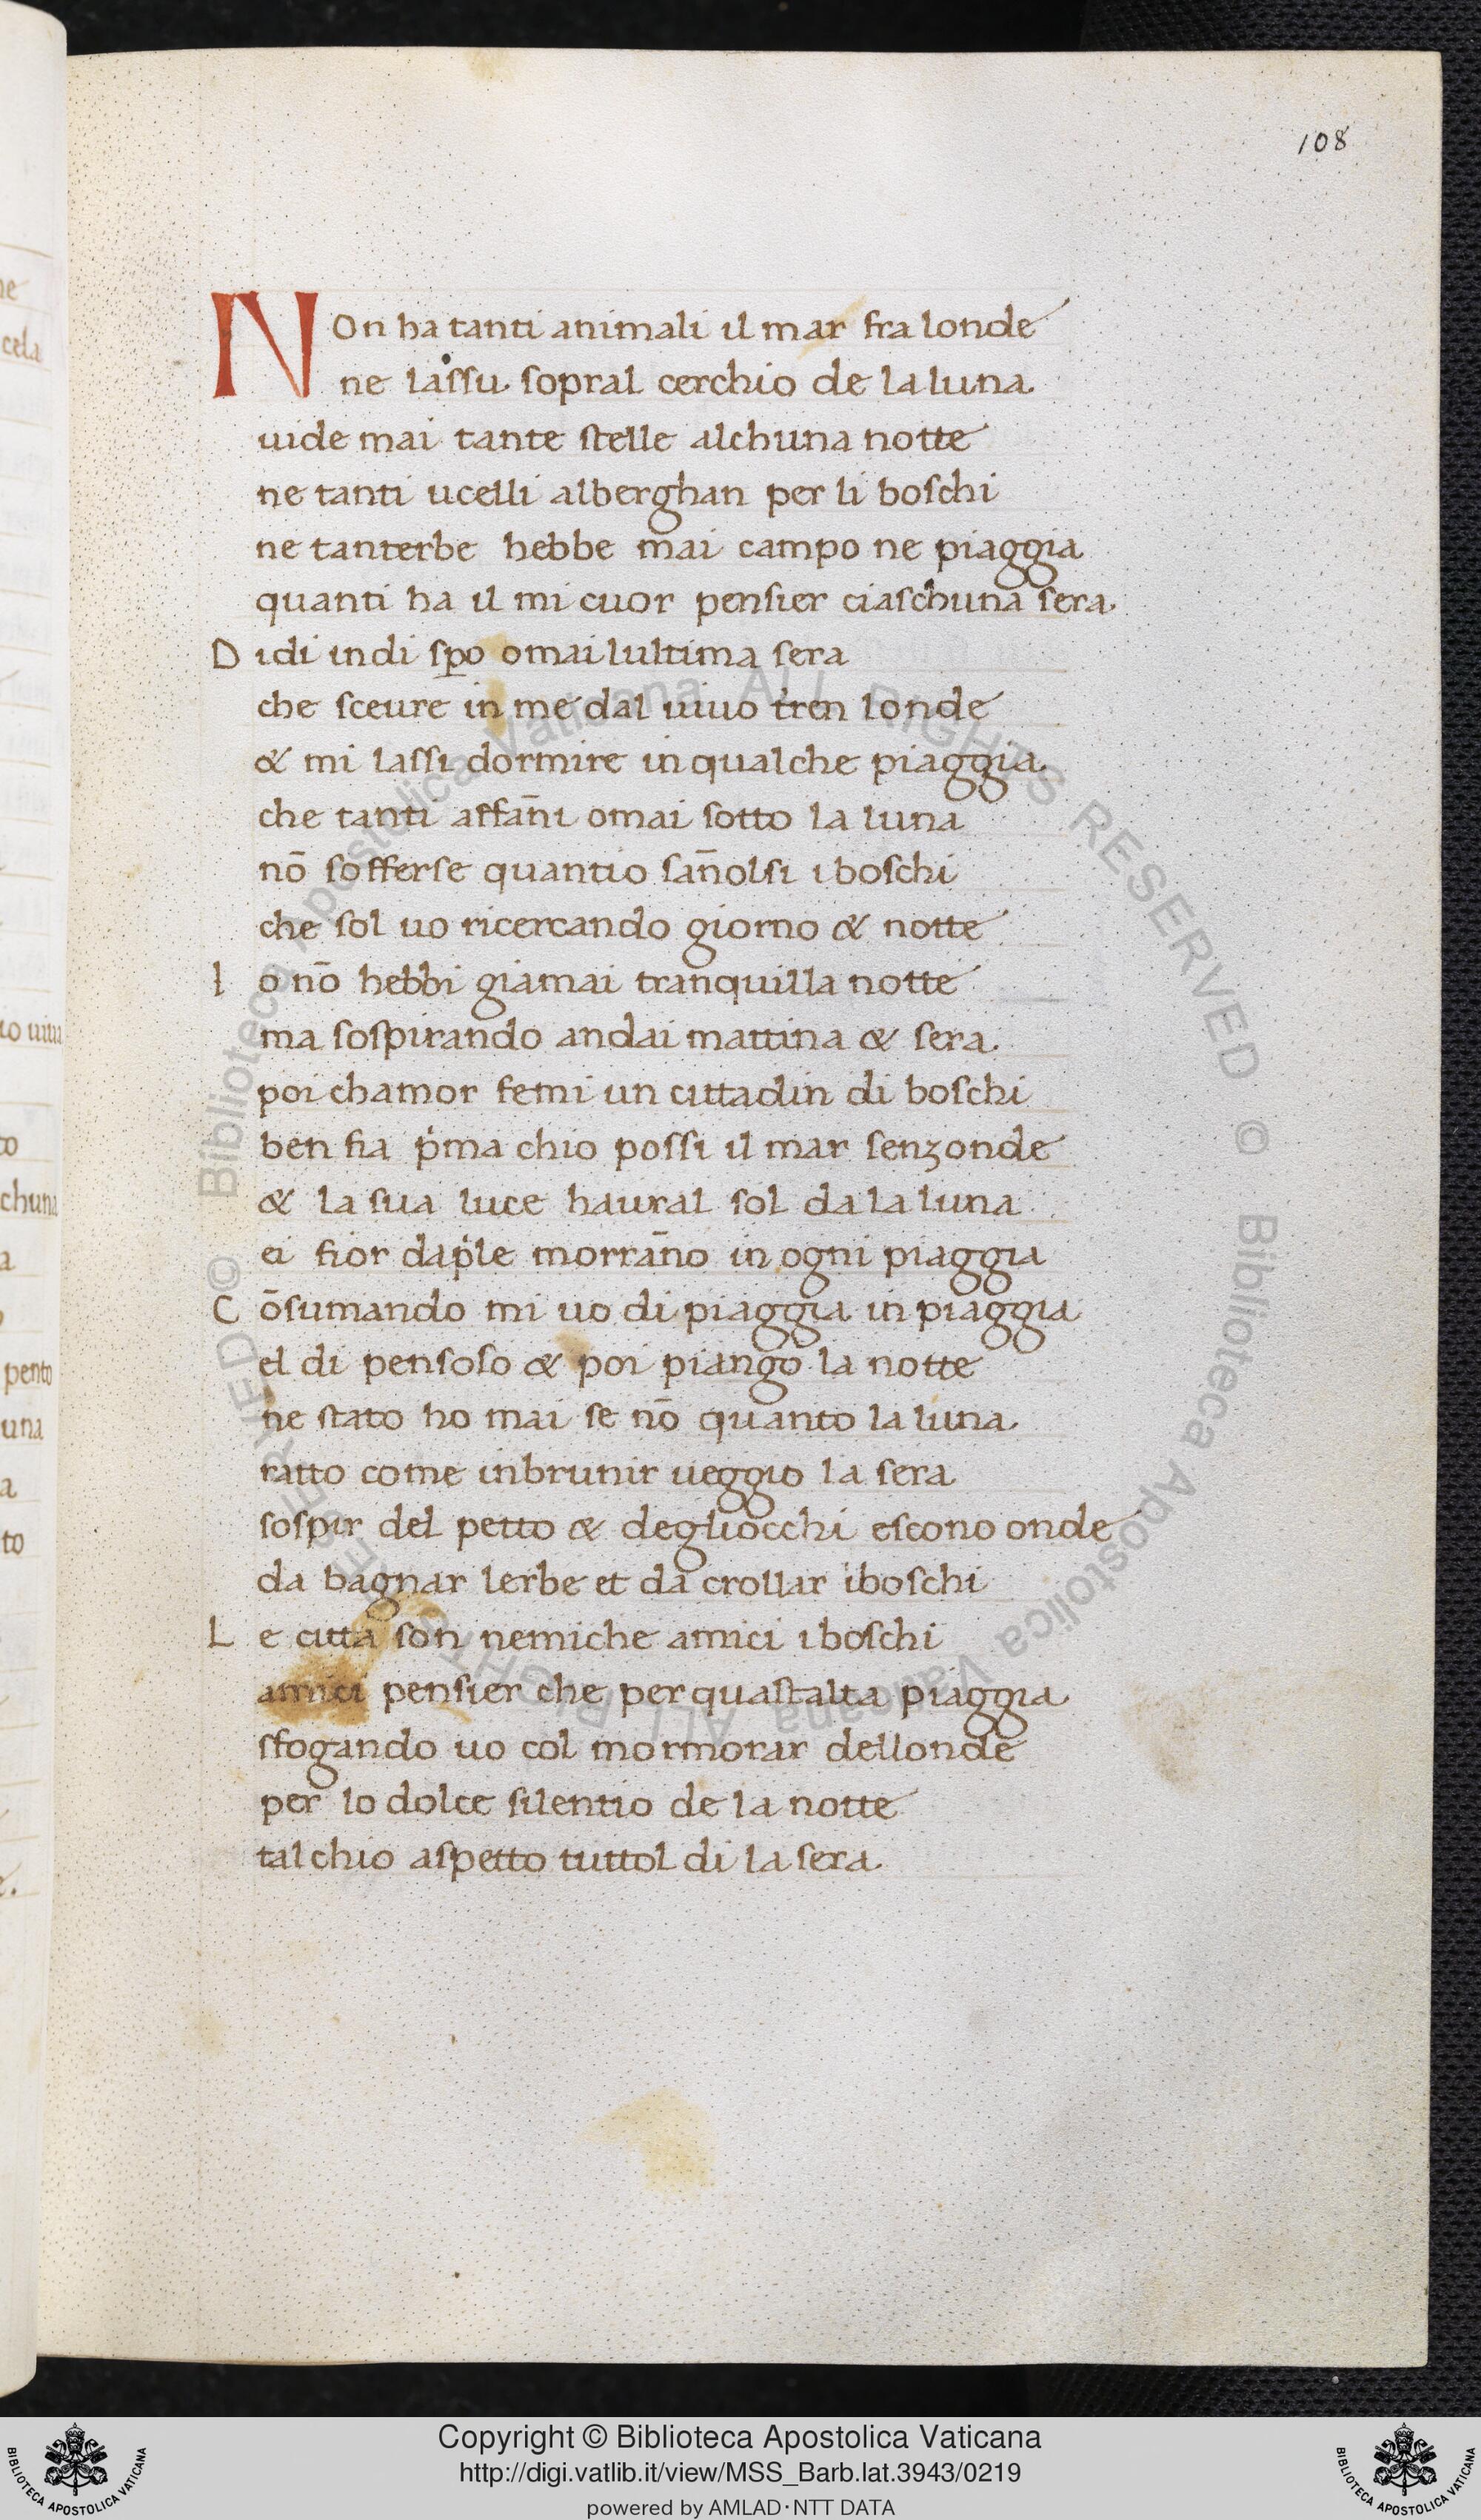 108
NOn ha tanti animali il mar fra londe
ne lassu sopral cerchio de la luna
uide mai tante stelle alchuna notte
ne tanti ucelli alberghan per li boschi
ne tanterbe hebbe mai campo ne piaggia
quanti ha il mi cuor pensier ciaschuna sera
D idi indi sꝑo omai lultima sera
che sceure in me dal uiuo tren londe
& mi lassi dormire in qualche piaggia
che tanti affan̄i omai sotto la luna
nō sofferse quantio san̄olsi i boschi
che sol uo ricercando giorno & notte
I o nō hebbi giamai tranquilla notte
ma sospirando andai mattina & sera
poi chamor femi un cittadin di boschi
ben fia p̍ma chio possi il mar senzonde
& la sua luce haural sol da la luna
ei fior dap̍le morran̄o in ogni piaggia
C ōsumando mi uo di piaggia in piaggia
el di pensoso & poi piango la notte
ne stato ho mai se nō quanto la luna
ratto come inbrunir ueggio la sera
sospir del petto & degliocchi escono onde
da bagnar lerbe et da crollar iboschi
L e citta son nemiche amici i boschi
amici pensier che per quastalta piaggia
sfogando uo col mormorar dellonde
per lo dolce silentio de la notte
tal chio aspetto tuttol di la sera
cela
chuna
pento
una
to
© Biblioteca Apostolica Vaticana ALL RIGHTS RESERVED © Biblioteca Apostolica Vaticana ALL RIGHTS RESERVED
BIBLIOTECA APOSTOLICA VATICANA
Copyright © Biblioteca Apostolica Vaticana
http://digi.vatlib.it/view/MSS_Barb.lat.3943/0219
powered by AMLAD·NTT DATA
BIBLIOTECA APOSTOLICA VATICANA